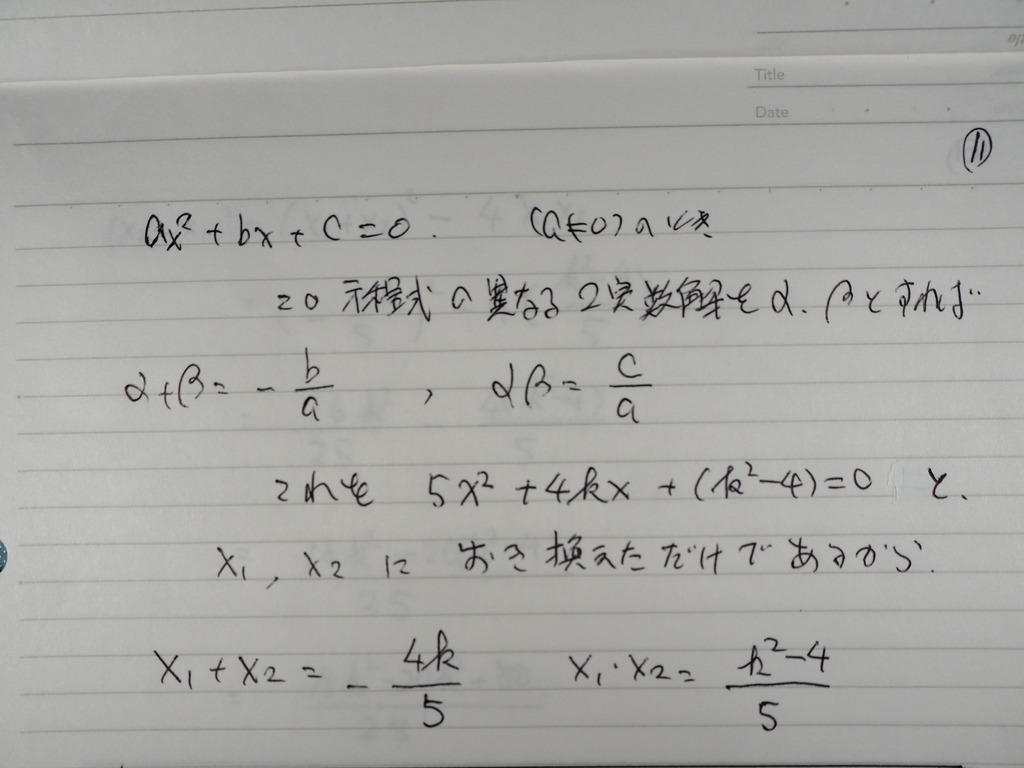 Title
Date
⑪
ax² + bx + c = 0. (a≠0) のとき
この方程式の異なる2実数解を α. βとすれば
α+β = - b/a , αβ = c/a
これを 5x² + 4kx + (k²-4) = 0 と.
x₁, x₂ に おき換えただけであるから.
x₁ + x₂ = - 4k/5 x₁・x₂ = k²-4/5